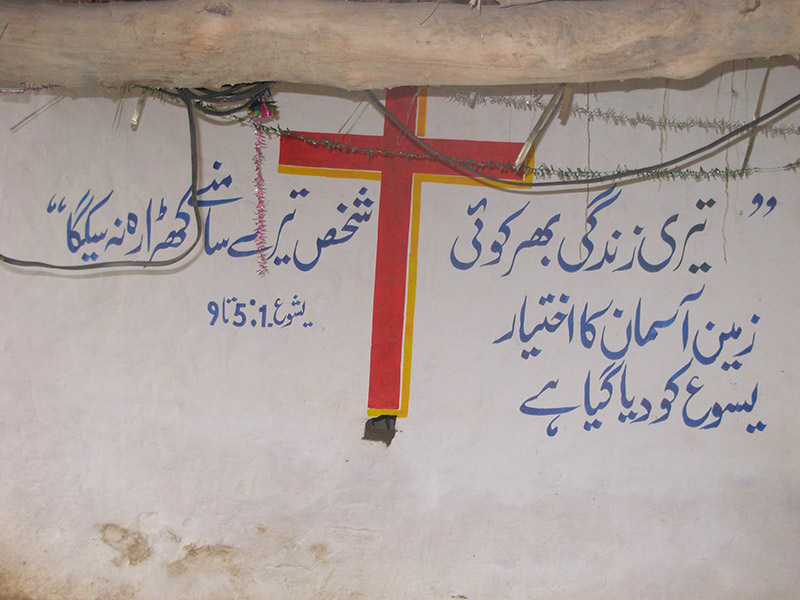 ”تیری زندگی بھر کوئی شخص تیرے سامنے کھڑا رہ نہ سکیگا“
یشوع۔1:5تا9
زمین آسمان کا اختیار
یسوع کو دیا گیا ہے